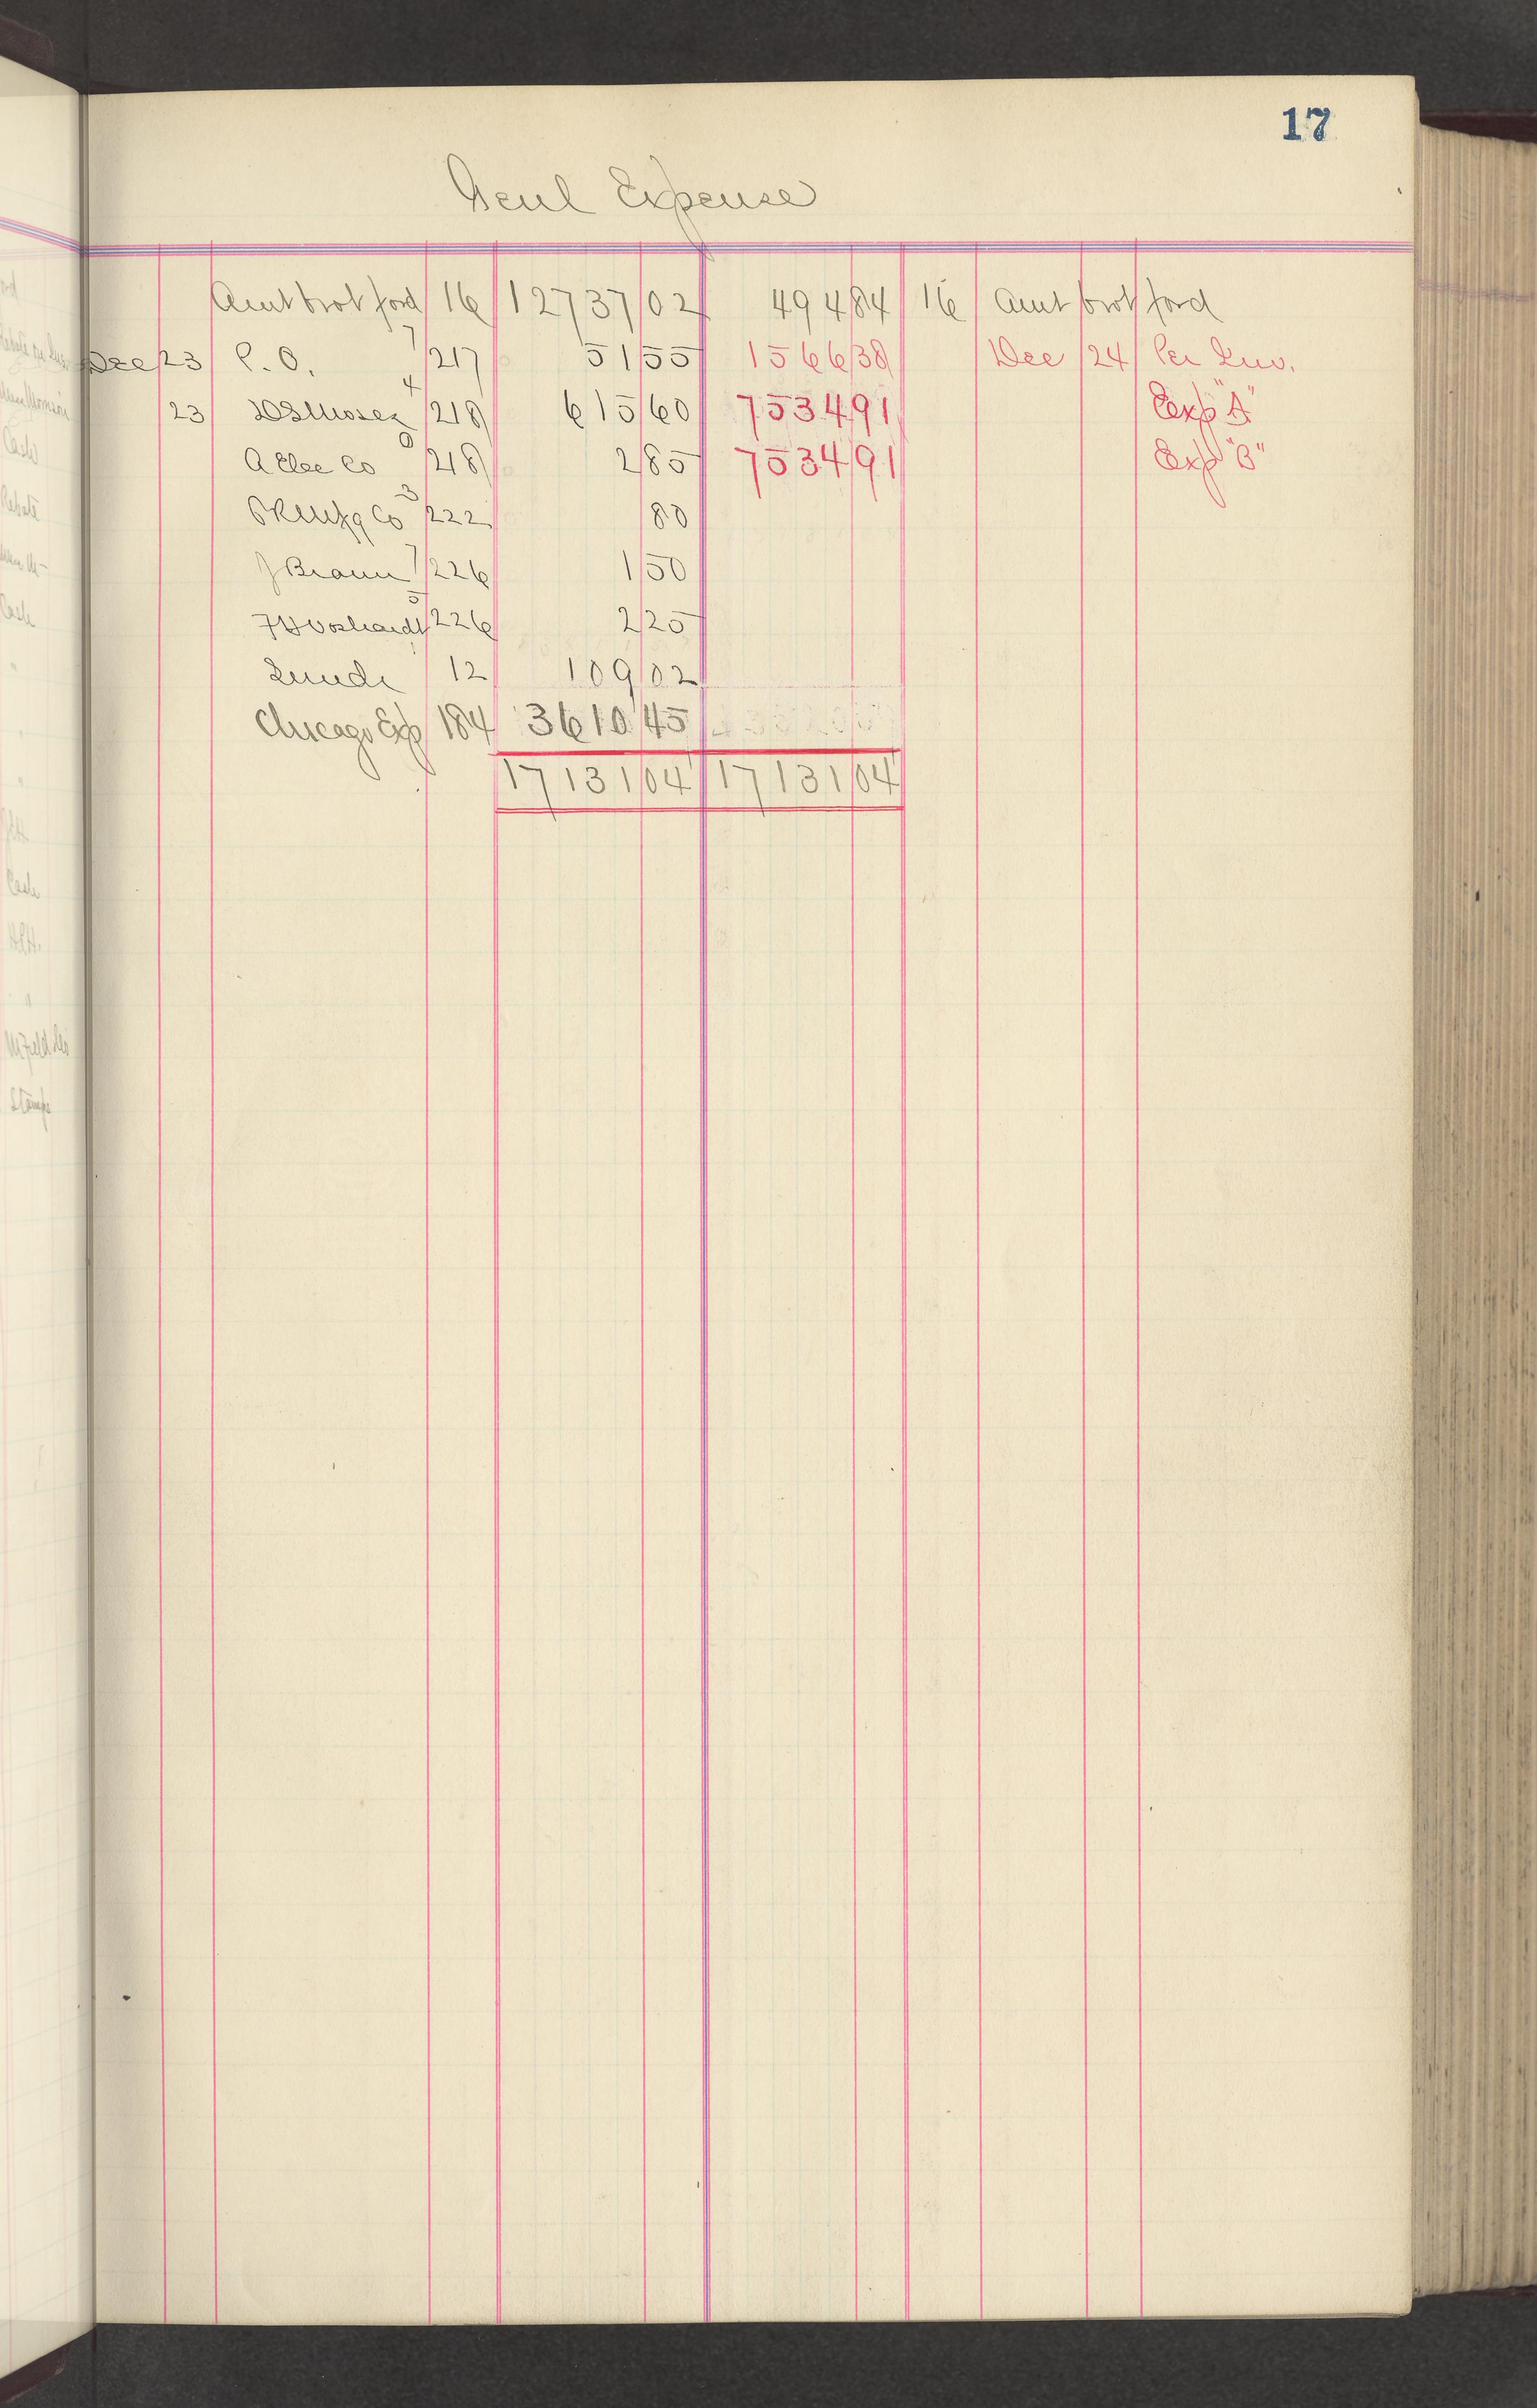 17
Genl Expense
Amt brot ford 16 12737 02 494 84 16 Amt brot ford
Dec 23 P.O. 7 217 51 55 1566 38 Dec 24 Per Inv.
23 4 218 615 60 7534 91 Exp "A"
A Elec Co 0 218 2 85 7534 91 Exp "B"
Mfg Co 3 222 80
J Braun 7 226 1 50
5 226 2 25
12 109 02
Chicago Exp 184 3610 45
17131 04 17131 04
Cash
Rebate
Cash
Cash
Stamps